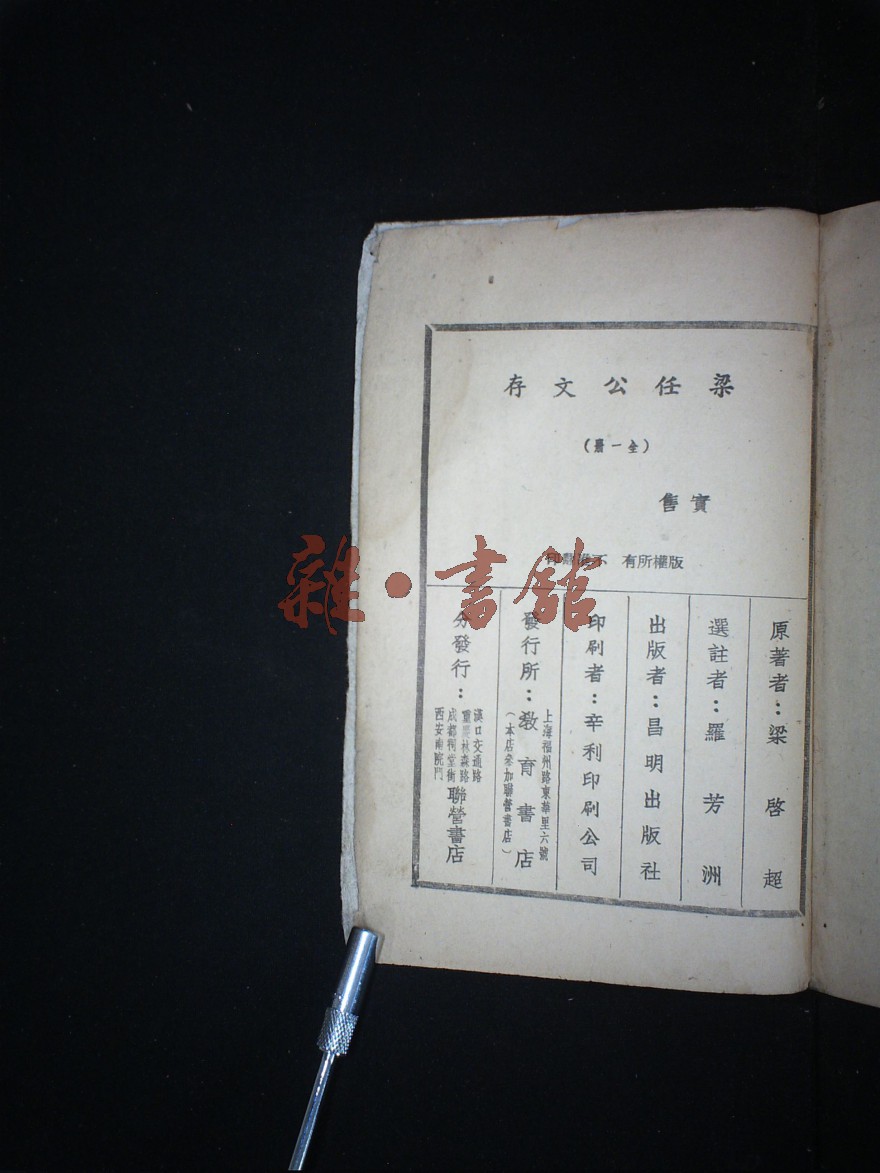 梁任公文存
(全一册)
實售
版權所有 不准翻印
原著者：梁啓超
選註者：羅芳洲
出版者：昌明出版社
印刷者：辛利印刷公司
上海福州路東華里六號
發行所：教育書店
(本店參加聯營書店)
分發行：
漢口交通路
重慶林森路
成都祠堂街
西安南院門
聯營書店
雜·書館